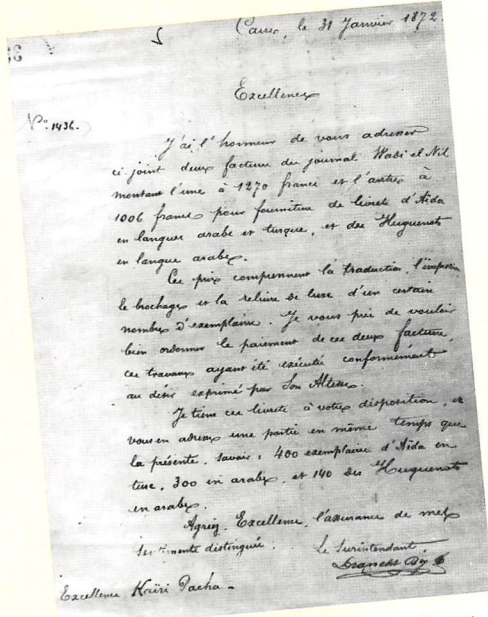 Caire, le 31 Janvier 1872
Excellence
No. 1436.
J'ai l'honneur de vous adresser
ci joint deux facture du journal Wadi el Nil
montant l'une à 1270 francs et l'autre à
1006 francs pour fourniture de livrets d'Aïda
en langues arabe et turque, et des Huguenots
en langue arabe.
Ces prix comprennent la traduction, l'impression
le brochage et la reliure de luxe d'un certain
nombre d'exemplaire. Je vous prie de vouloir
bien ordonner le paiement de ces deux facture,
ces travaux ayant été exécutés conformément
au désir exprimé par Son Altesse.
Je tiens ces livrets à votre disposition, et
vous en adresse une partie en même temps que
la présente, savoir : 400 exemplaire d'Aïda en
turc, 300 en arabe, et 140 des Huguenots
en arabe.
Agréez, Excellence, l'assurance de mes
sentiments distingués.
Le Surintendant
Draneht Bey
Excellence Kaïri Pacha